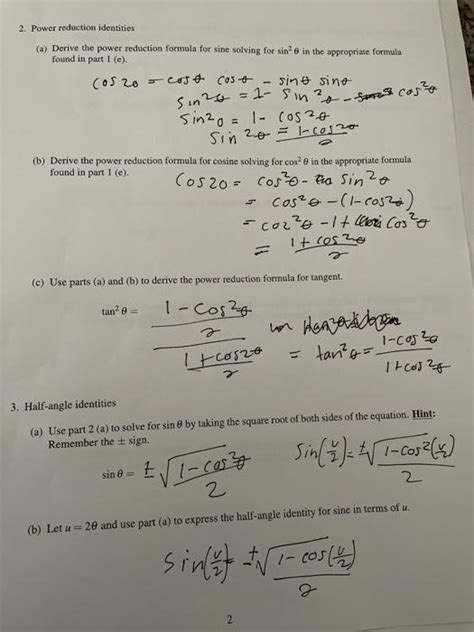 2. Power reduction identities
(a) Derive the power reduction formula for sine solving for sin² θ in the appropriate formula
found in part 1 (e).
cos2θ = cosθ cosθ - sinθ sinθ
sin²θ = 1 - sin²θ - cos²θ
sin²θ = 1 - cos²θ
sin²θ = 1-cos2θ
2
(b) Derive the power reduction formula for cosine solving for cos² θ in the appropriate formula
found in part 1 (e).
cos2θ = cos²θ - sin²θ
= cos²θ - (1-cos²θ)
= cos²θ - 1 + cos²θ
= 1 + cos2θ
2
(c) Use parts (a) and (b) to derive the power reduction formula for tangent.
tan² θ = 1 - cos²θ
2
1 + cos2θ
2
= tan²θ = 1-cos²θ
1+cos²θ
3. Half-angle identities
(a) Use part 2 (a) to solve for sin θ by taking the square root of both sides of the equation. Hint:
Remember the ± sign.
sin θ = ±√1-cos²θ
2
sin(u/2) = ±√1-cos2(u/2)
2
(b) Let u = 2θ and use part (a) to express the half-angle identity for sine in terms of u.
sin(u/2) = ±√1-cos(u/2)
2
2